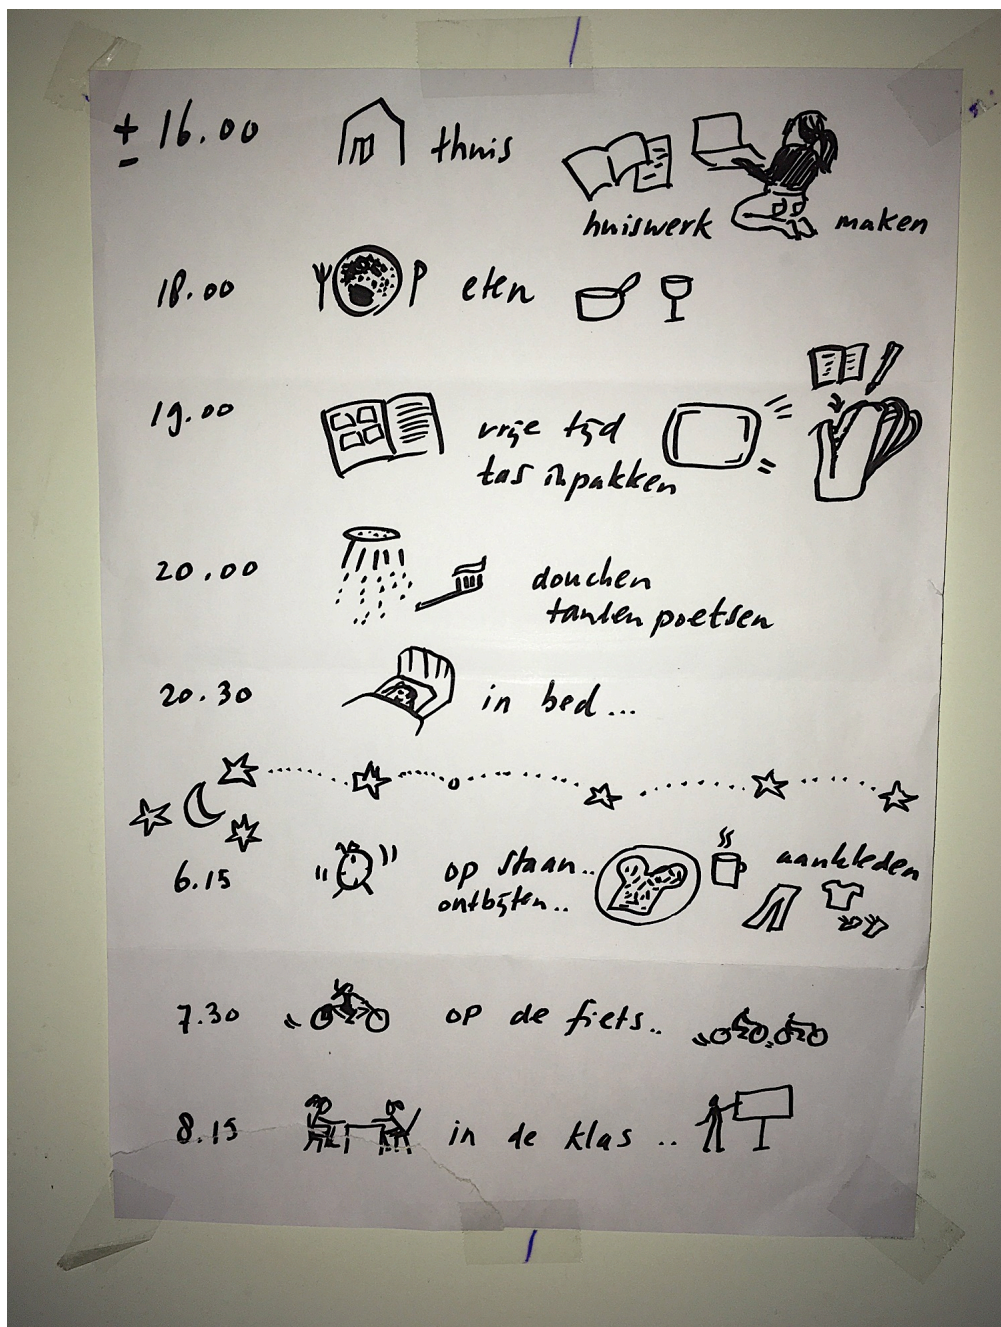 ± 16.00 thuis
huiswerk maken
18.00 eten
19.00 vrije tijd
tas inpakken
20.00 douchen
tanden poetsen
20.30 in bed...
6.15 op staan.. aankleden
ontbijten..
7.30 op de fiets..
8.15 in de klas ..